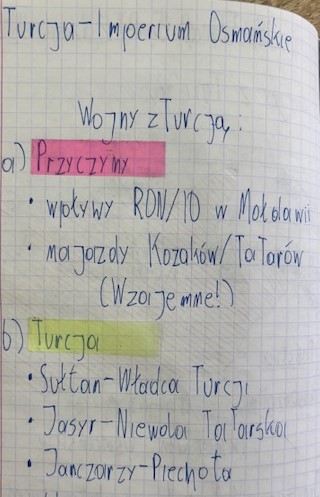 Turcja-Imperium Osmańskie
Wojny z Turcją:
a) Przyczyny
• wpływy RON/IO w Mołdawii
• najazdy Kozaków/Tatarów
(Wzajemne!)
b) Turcja
• Sułtan-Władca Turcji
• Jasyr-Niewola Tatarska
• Janczarzy-Piechota